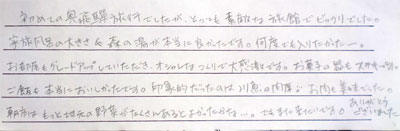 初めての奥飛騨旅行でしたが、とっても素敵な旅館でビックリでした。
家族風呂の大きさと森の湯が本当に良かったです。何度でも入りたかったー。
お部屋もグレードアップしていただき、オシャレなつくりで大感激です。お菓子の器も
ご飯も本当においしかったです。印象的だったのは川魚。肉厚♪お肉も美味でした。
朝食はもっと地元の野菜がたくさんあるとよかったかな…。ぜひまた来たいです。
ありがとう
ございました